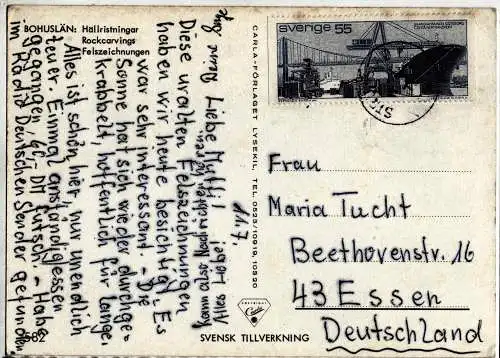 BOHUSLÄN: Hällristningar
Rockcarvings
Felszeichnungen
11.7.
Liebe Mutti!
Diese uralten Felszeichnungen
haben wir heute besichtigt. Es
war sehr interessant. - Die
Sonne hat sich wieder durchge-
krabbelt, hoffentlich für lange.
Alles ist schön hier, nur unendlich
teuer. Einmal anständig essen
gegangen, 60,- DM futsch. - Habe
im Radio Deutschen Sender gefunden
kann also Nachrichten hören
Alles Liebe!
582
CARLA-FÖRLAGET LYSEKIL, TEL. 0523/10919, 10920
COPYRIGHT
SVENSK TILLVERKNING
sverige 55
Frau
Maria Tucht
Beethovenstr. 16
43 Essen
Deutschland